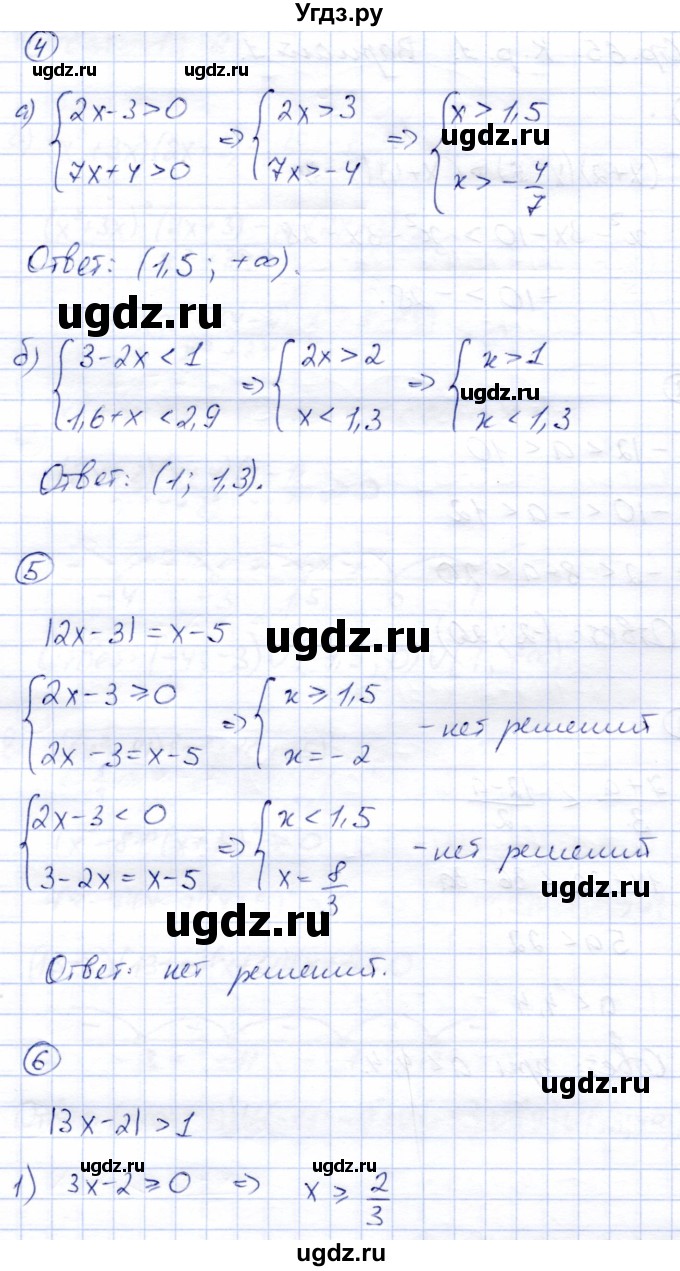 Угдз.ру
4
ugdz.ru ugdz.ru
а) { 2x-3>0 => { 2x>3 => { x>1,5
{ 7x+4>0 { 7x>-4 { x>-4/7
ugdz.ru
Ответ: (1,5; +∞).
ugdz.ru
б) { 3-2x<1 => { 2x>2 => { x>1
{ 1,6+x<2,9 { x<1,3 { x<1,3
ugdz.ru
Ответ: (1; 1,3).
5
|2x-3|=x-5
ugdz.ru
{ 2x-3≥0 => { x≥1,5 - нет решений
{ 2x-3=x-5 { x=-2
{ 2x-3<0 => { x<1,5 - нет решений
{ 3-2x=x-5 { x=8/3
ugdz.ru
ugdz.ru
Ответ: нет решений.
6
ugdz.ru
|3x-2|>1
ugdz.ru ugdz.ru
1) 3x-2≥0 => x≥2/3
ugdz.ru